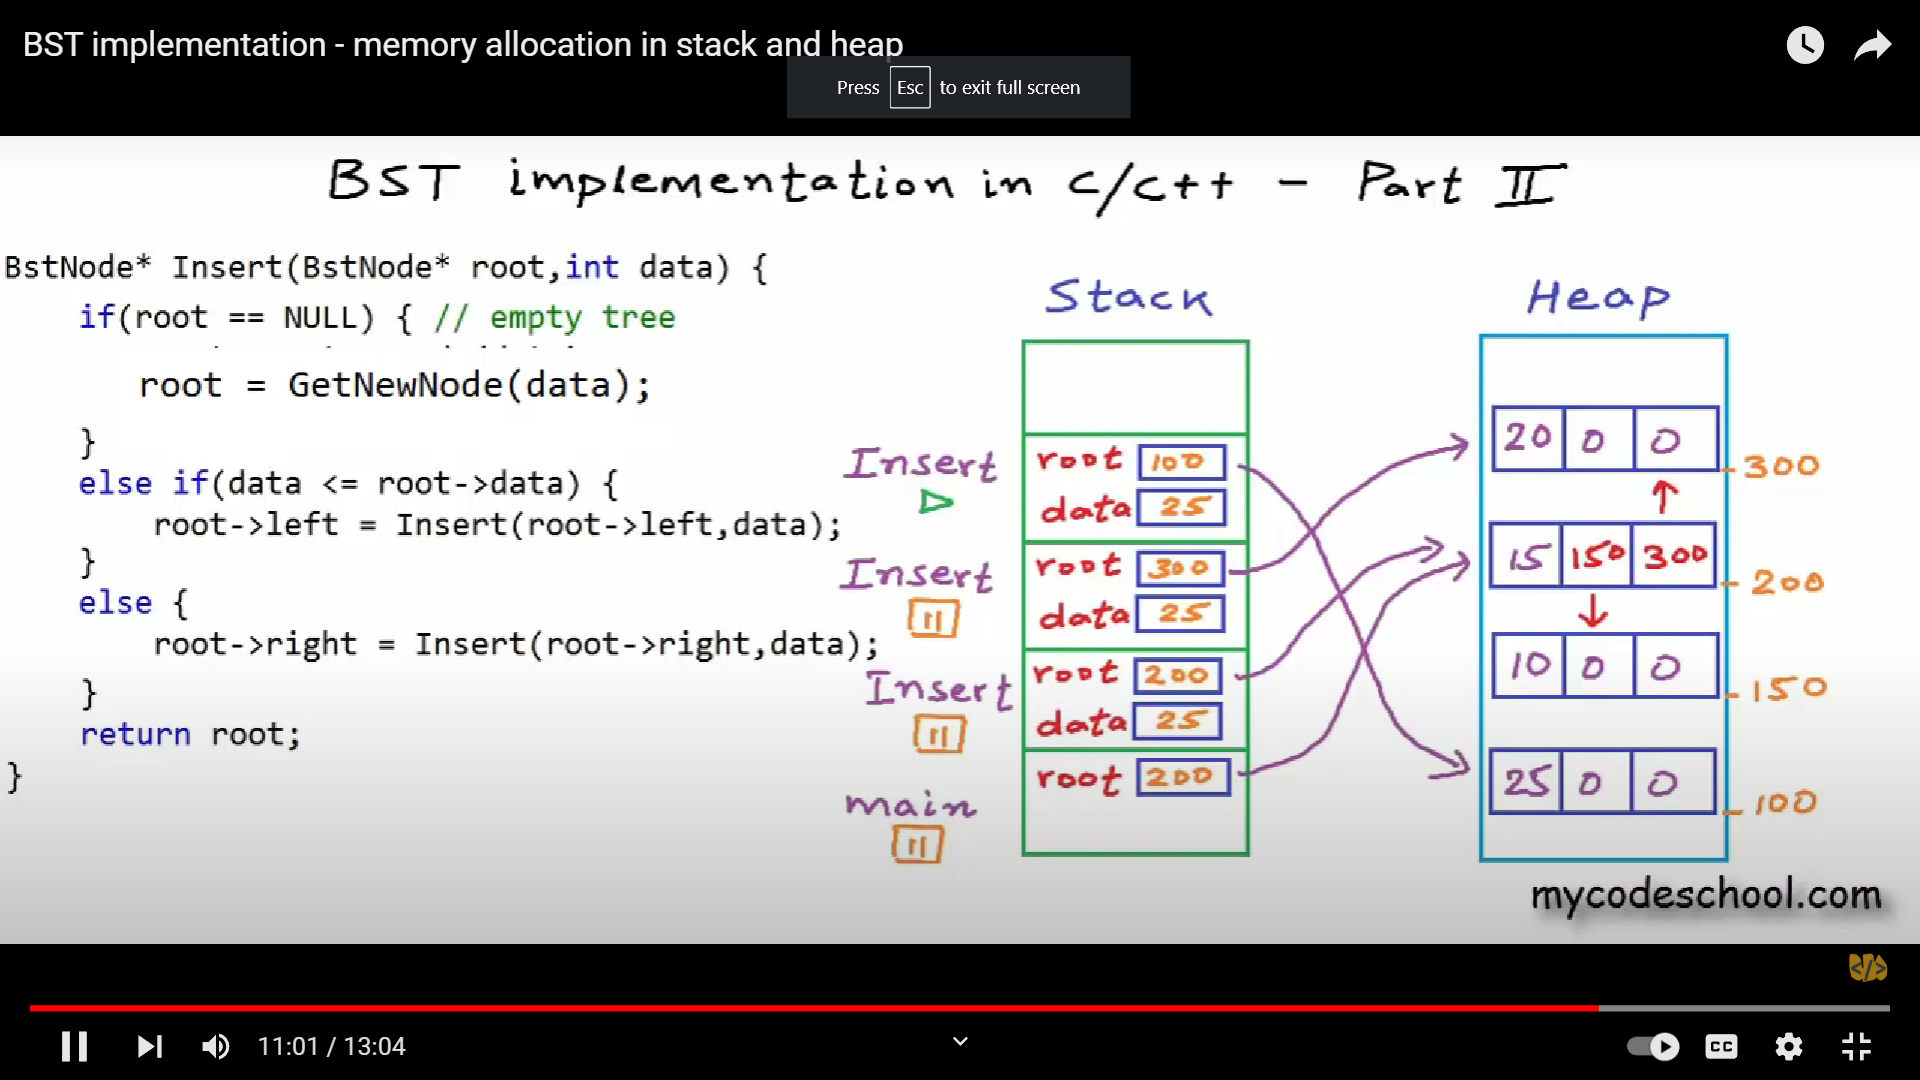 BST implementation - memory allocation in stack and heap
Press Esc to exit full screen
BST implementation in c/c++ - Part II
BstNode* Insert(BstNode* root,int data) {
if(root == NULL) { // empty tree
root = GetNewNode(data);
}
else if(data <= root->data) {
root->left = Insert(root->left,data);
}
else {
root->right = Insert(root->right,data);
}
return root;
}
Stack
Insert
root 100
data 25
Insert
root 300
data 25
Insert
root 200
data 25
main
root 200
Heap
20 0 0
300
15 150 300
200
10 0 0
150
25 0 0
100
mycodeschool.com
</>
11:01 / 13:04
CC